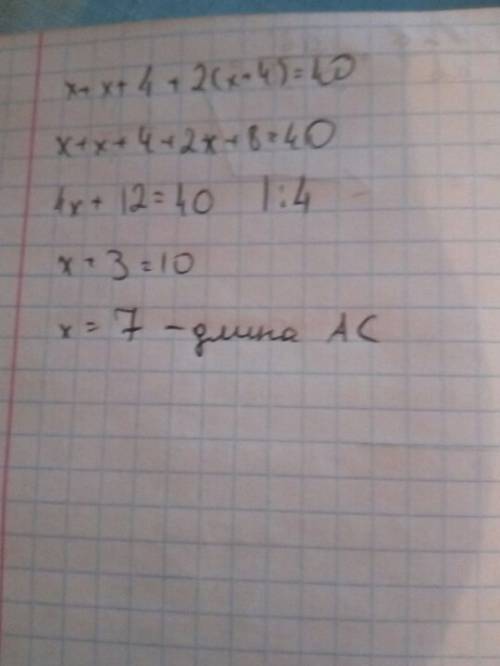 x+x+4+2(x+4)=40
x+x+4+2x+8=40
4x+12=40 |:4
x+3=10
x=7 – длина AC